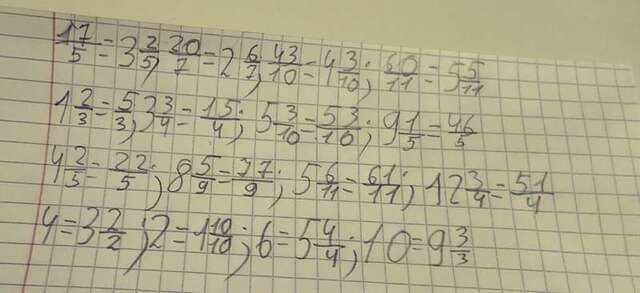 17/5 = 3 2/5; 20/7 = 2 6/7; 43/10 = 4 3/10; 60/11 = 5 5/11
1 2/3 = 5/3; 3 3/4 = 15/4; 5 3/10 = 53/10; 9 1/5 = 46/5
4 2/5 = 22/5; 8 5/9 = 77/9; 5 6/11 = 61/11; 12 3/4 = 51/4
4 = 3 2/2; 2 = 1 10/10; 6 = 5 4/4; 10 = 9 3/3